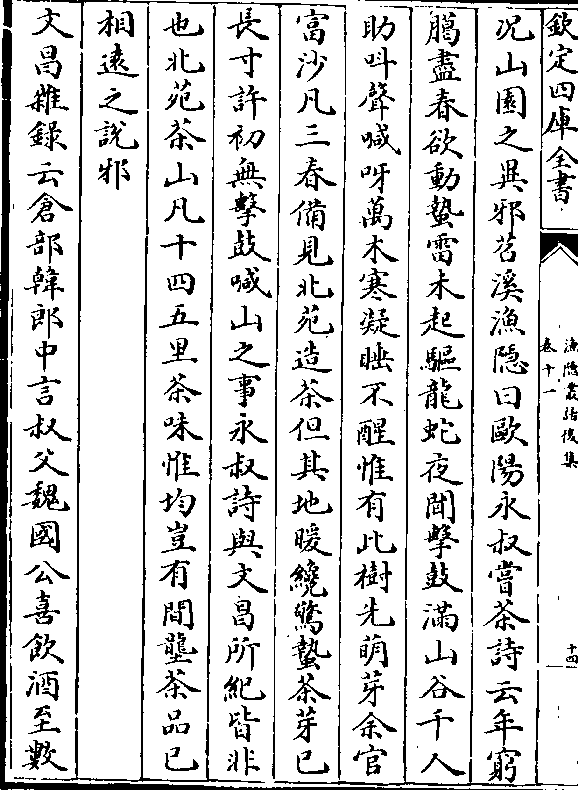 欽定四庫全書
漁隱叢話後集
卷十一
十四
况山園之異邪苕溪漁隱曰歐陽永叔嘗茶詩云年窮
臈盡春欲動蟄雷未起驅龍蛇夜間擊鼓滿山谷千人
助呌聲喊呀萬木寒凝睡不醒惟有此樹先萌芽余官
富沙凡三春備見北苑造茶但其地暖纔驚蟄茶芽已
長寸許初無擊鼓喊山之事永叔詩與文昌所紀皆非
也北苑茶山凡十四五里茶味惟均豈有間壟茶品已
相逺之說邪
文昌雜錄云倉部韓郎中言叔父魏國公喜飲酒至數